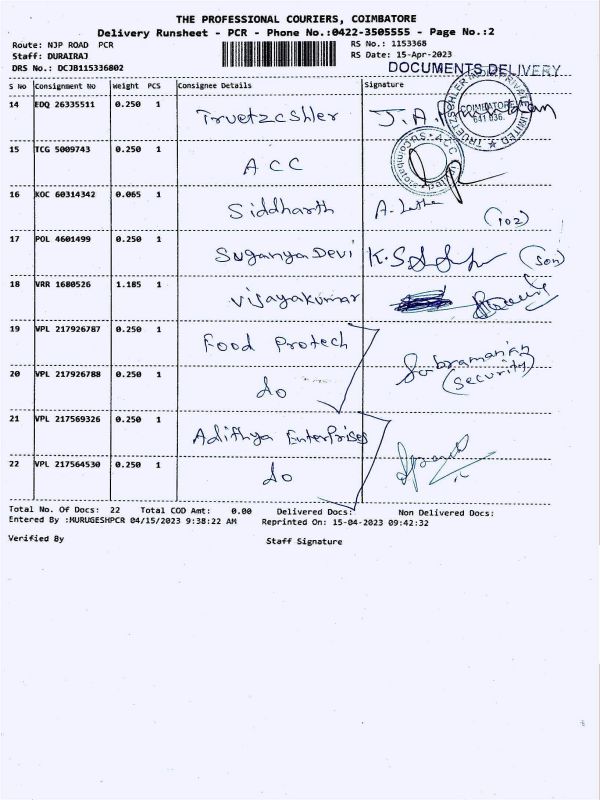 THE PROFESSIONAL COURIERS, COIMBATORE
Delivery Runsheet - PCR - Phone No.:0422-3505555 - Page No.:2
Route: NJP ROAD PCR
RS No.: 1153368
Staff: DURAIRAJ
RS Date: 15-Apr-2023
DRS No.: DCJB115336802
DOCUMENTS DELIVERY
S No Consignment No Weight PCS Consignee Details Signature
14 EDQ 26335511 0.250 1 Truetzcshler
COIMBATORE
641 036.
15 TCG 5009743 0.250 1 ACC
16 KOC 60314342 0.065 1 Siddharth A. Latha (102)
17 POL 4601499 0.250 1 Suganya Devi (Son)
18 VRR 1680526 1.185 1 Vijayakumar
19 VPL 217926787 0.250 1 Food Protech
Subramanian
(Security)
20 VPL 217926788 0.250 1 do
21 VPL 217569326 0.250 1 Adithya Enterprises
22 VPL 217564530 0.250 1 do
Total No. Of Docs: 22 Total COD Amt: 0.00 Delivered Docs: Non Delivered Docs:
Entered By :MURUGESHPCR 04/15/2023 9:38:22 AM Reprinted On: 15-04-2023 09:42:32
Verified By Staff Signature